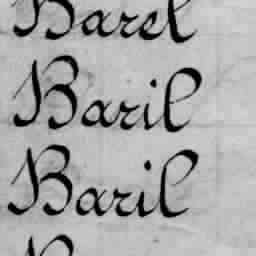 Barel
Baril
Baril